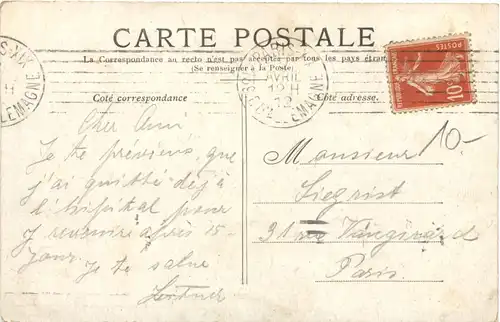 CARTE POSTALE
La Correspondance au recto n'est pas acceptée par tous les pays étran
(Se renseigner à la Poste)
Côté correspondance
Côté adresse.
Cher Ami
Je te préviens que
j'ai quitté déjà
l'hôpital pour
y revenir après 15
jours
Je te salue
10-
Monsieur
Siegrist
31 rue Vaugirard
Paris.
PARIS
AVRIL
12 H
12
LEMAGNE
LEMAGNE
REPUBLIQUE FRANÇAISE
POSTES
10